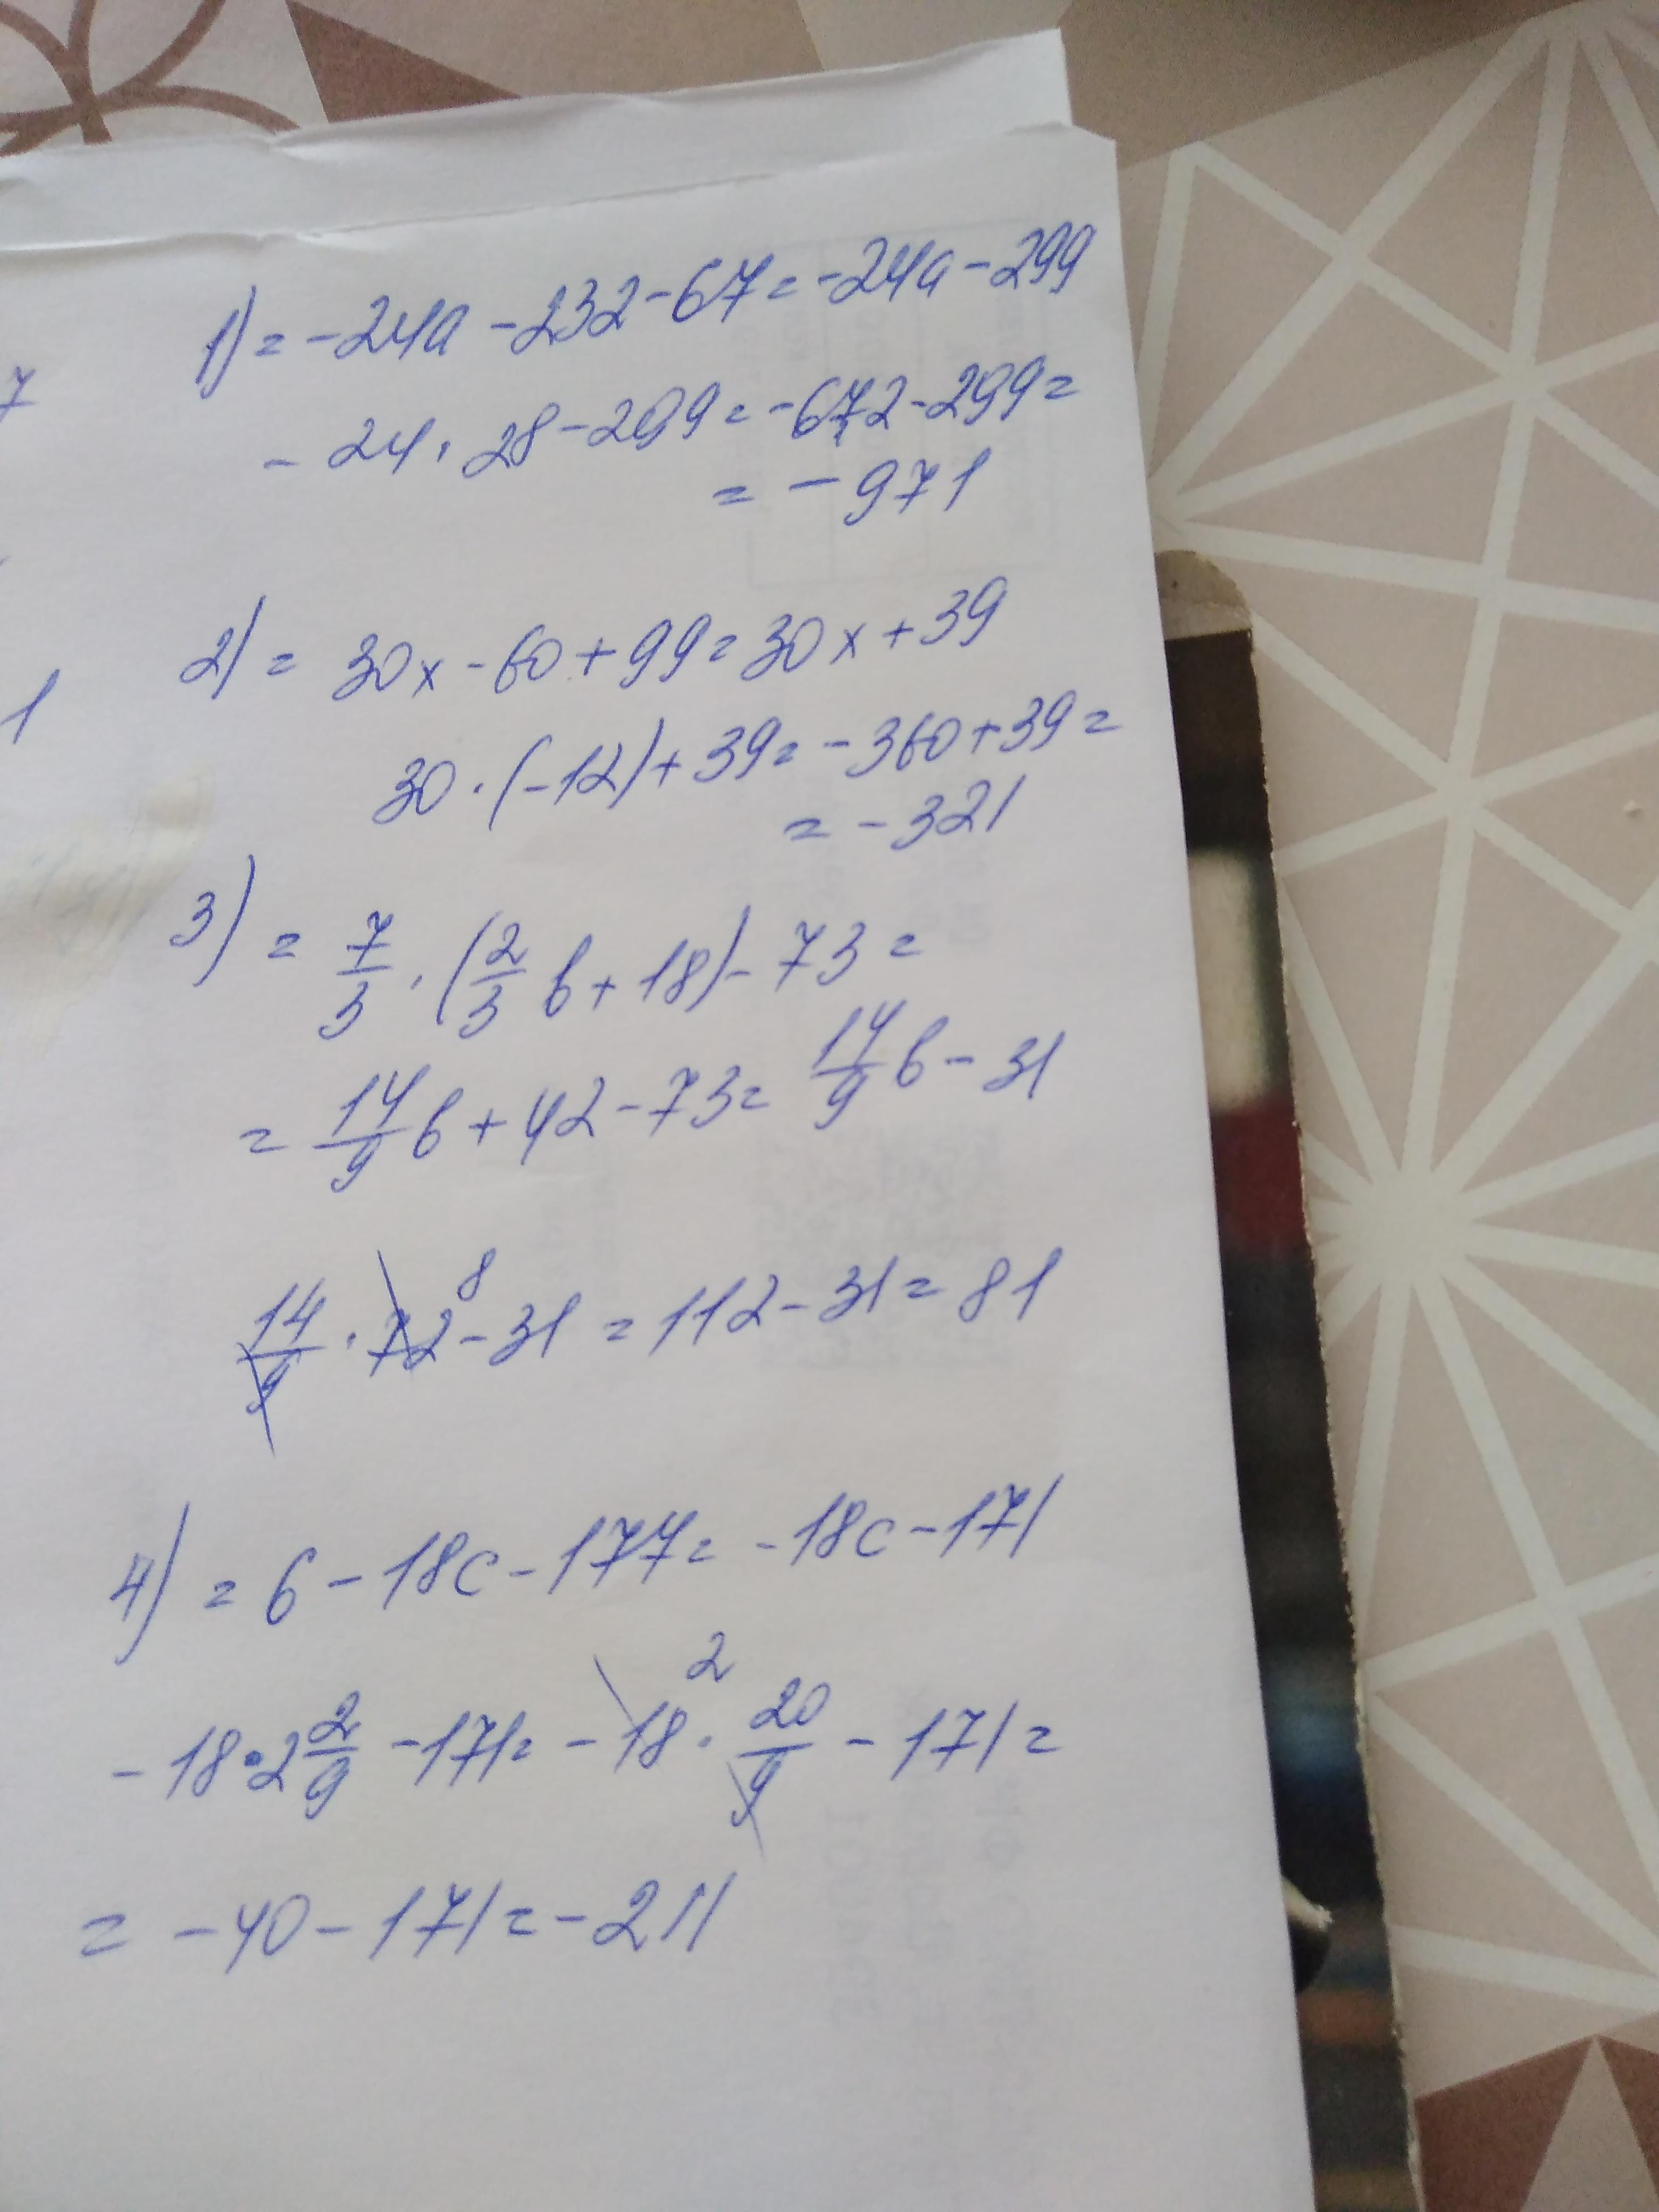 7
1
1) = -24a - 232 - 67 = -24a - 299
- 24 · 28 - 299 = -672 - 299 =
= - 971
2) = 30x - 60 + 99 = 30x + 39
30 · (-12) + 39 = - 360 + 39 =
= - 321
3) = 7/3 · (2/3 b + 18) - 73 =
= 14/9 b + 42 - 73 = 14/9 b - 31
14/9 · 72 8 - 31 = 112 - 31 = 81
4) = 6 - 18c - 177 = - 18c - 171
- 18 · 2 2/9 - 171 = - 18 2 · 20/9 - 171 =
= - 40 - 171 = - 211